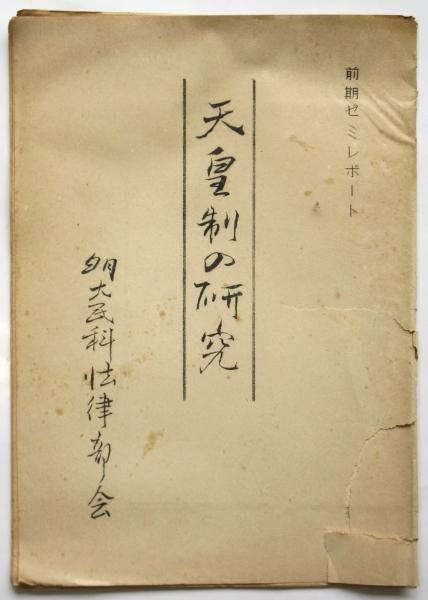 前期ゼミレポート
天皇制の研究
明大民科法律部会